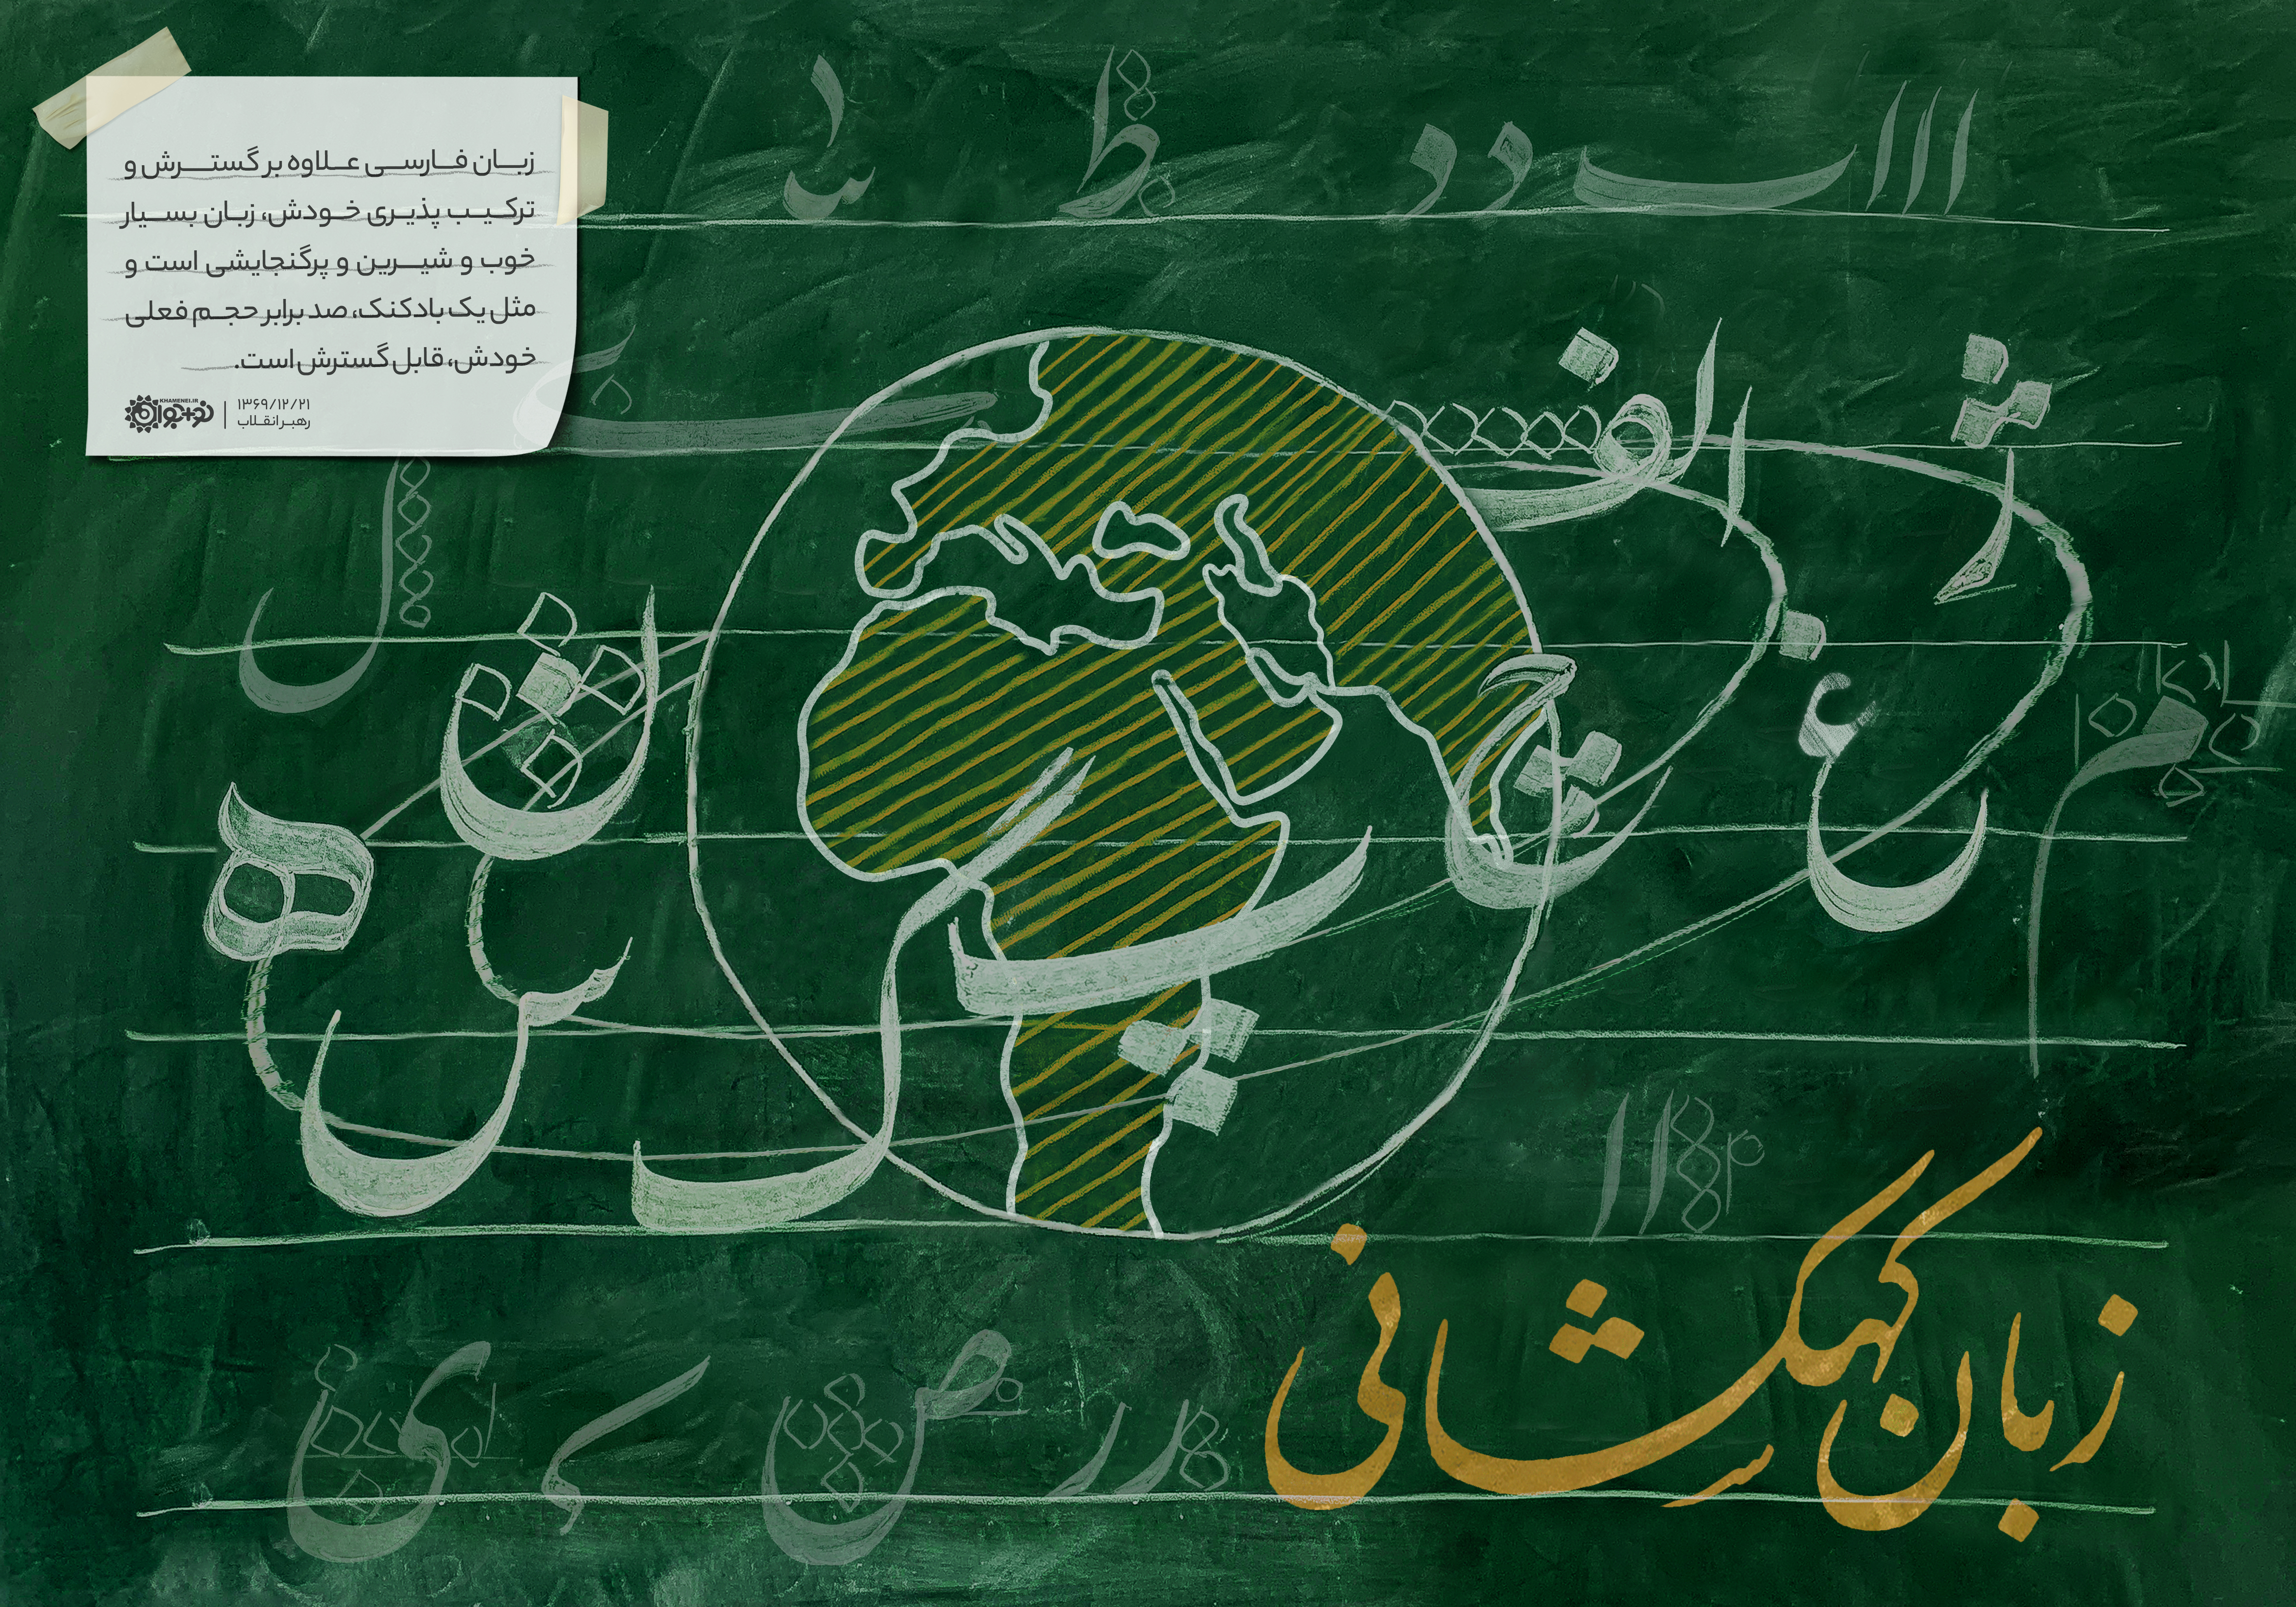 زبان فارسی علاوه بر گسترش و
ترکیب پذیری خودش، زبان بسیار
خوب و شیرین و پرگنجایشی است و
مثل یک بادکنک، صد برابر حجم فعلی
خودش، قابل گسترش است.
۱۳۶۹/۱۲/۲۱
رهبر انقلاب
KHAMENEI.IR
نوجوان
ا ا ا ب د د
ث
الف
ژ
چ
غ
پ
گ
ن
س
ه
ل
م
ر ر ص
ی
زبان کهکشانی